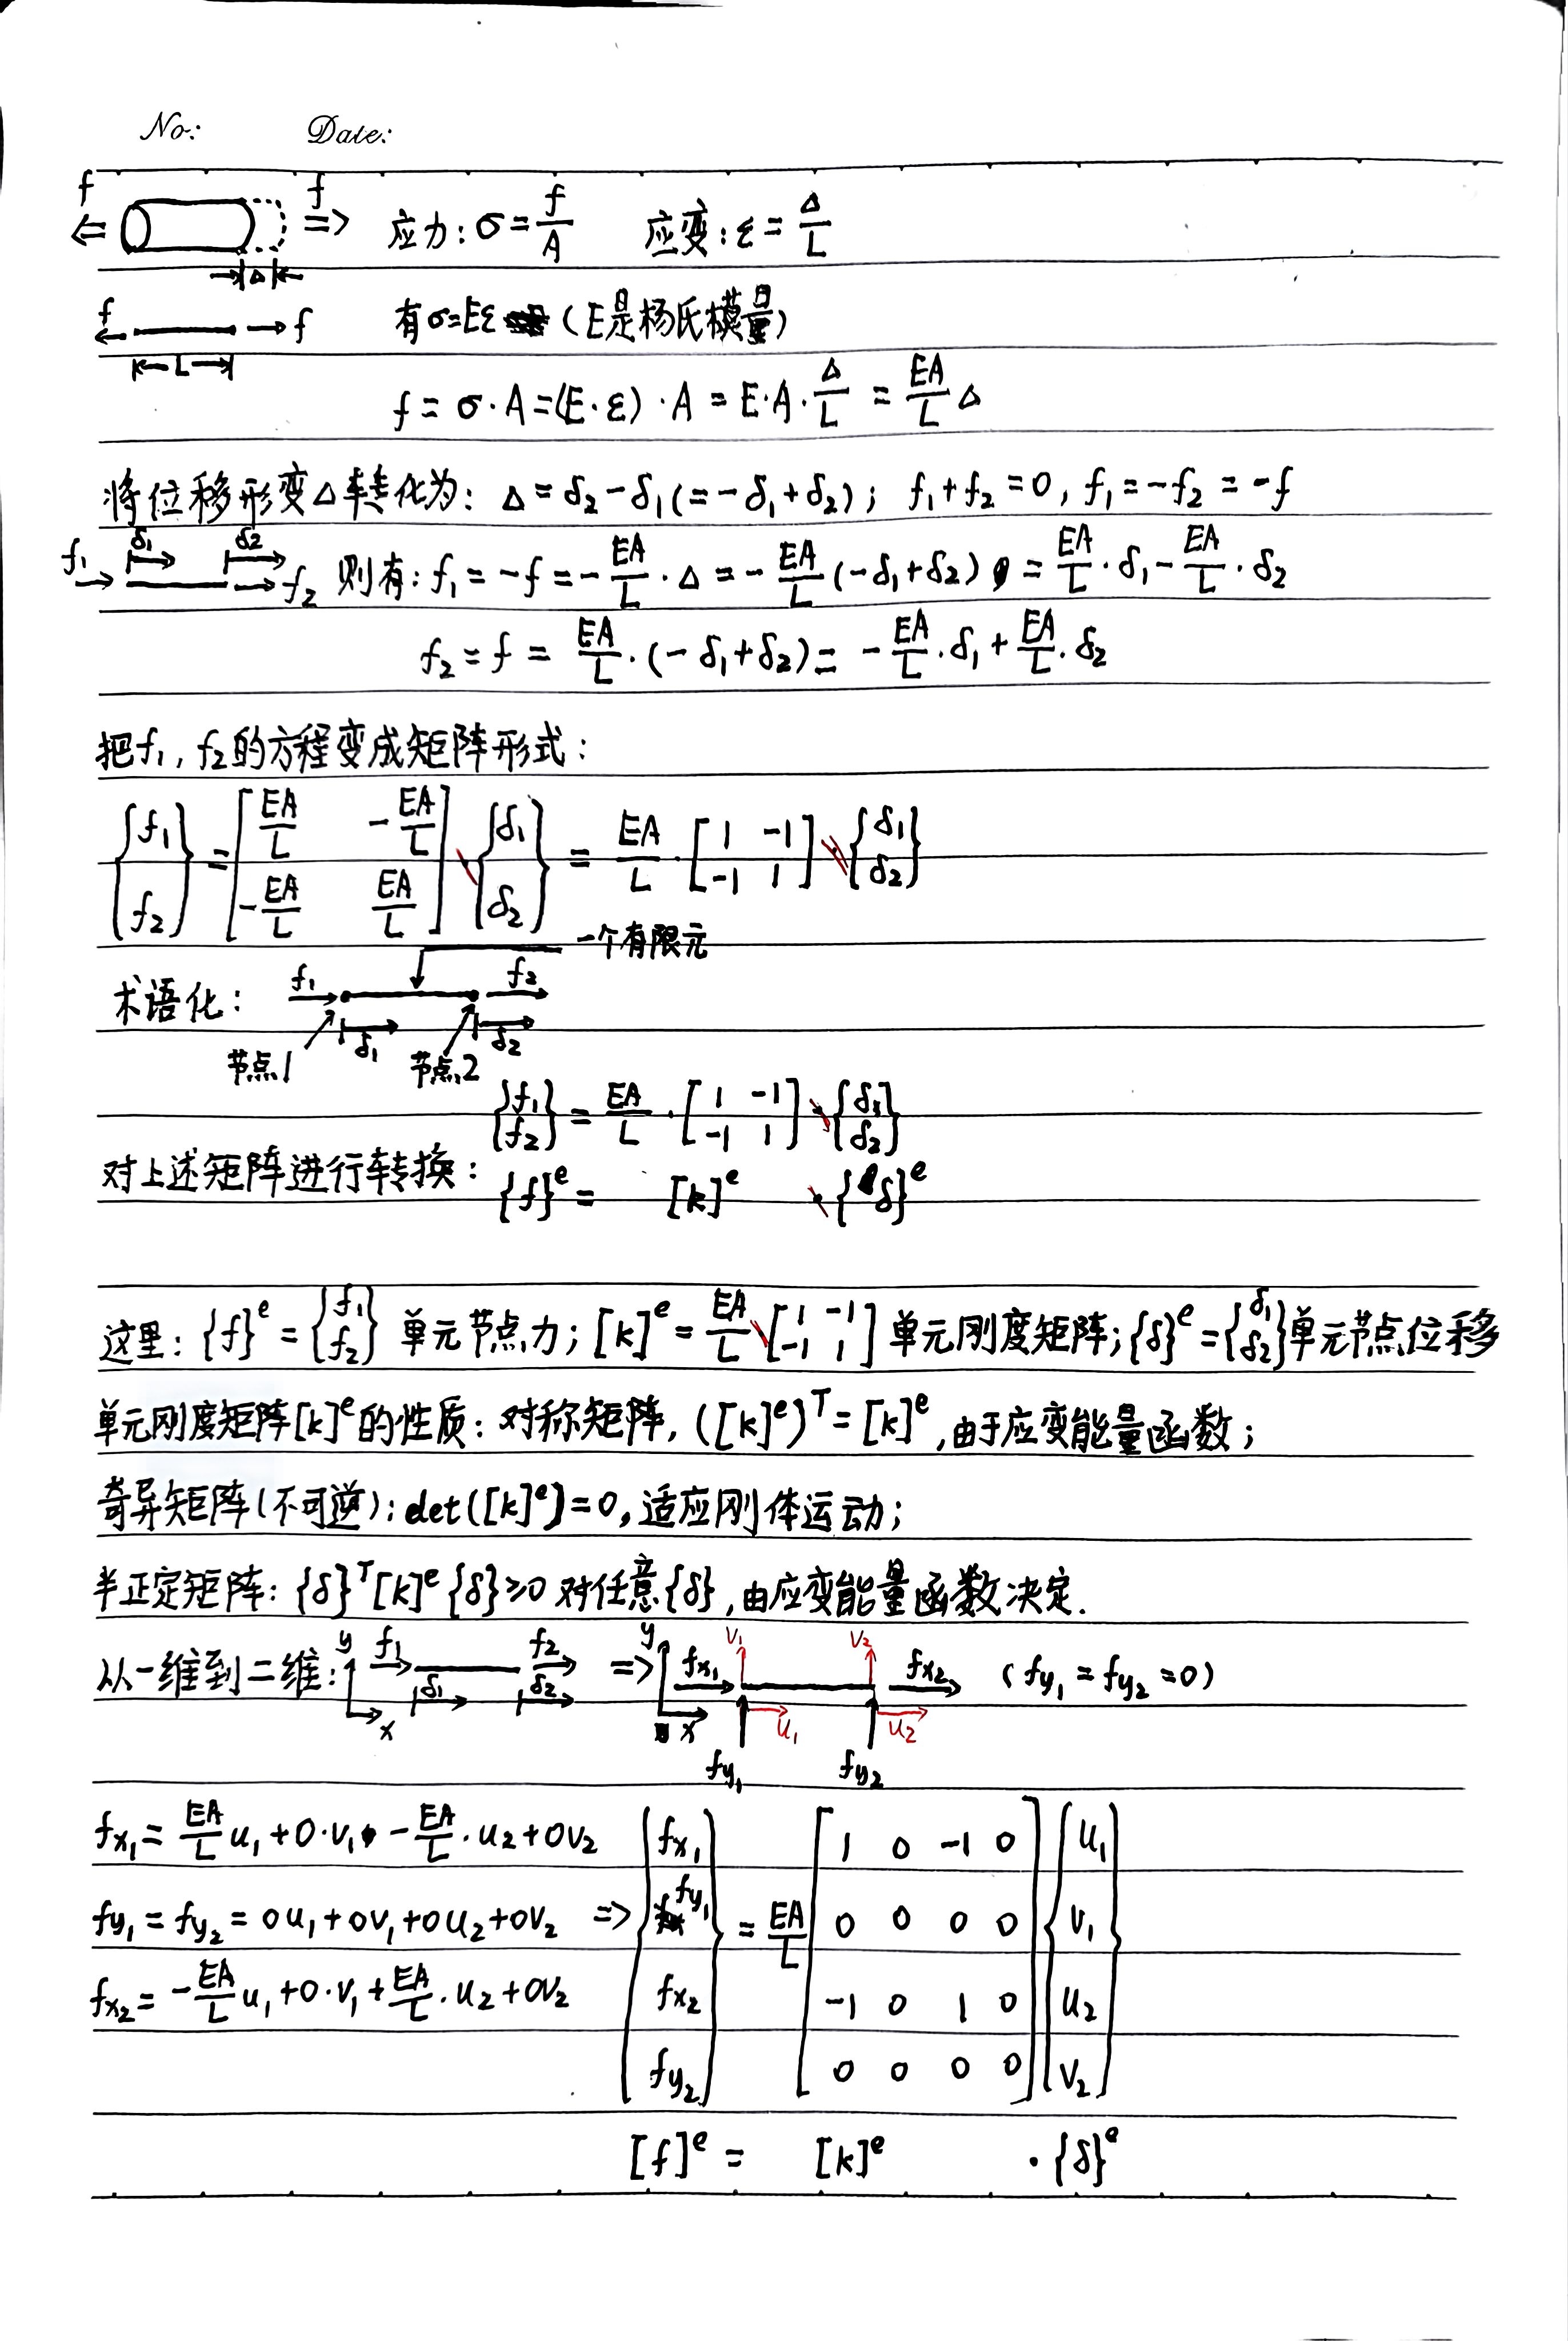 No: Date:
f f 应力: σ = f/A 应变: ε = Δ/L
Δ
f f 有σ=Eε (E是杨氏模量)
L
f = σ·A = (E·ε)·A = E·A·Δ/L = EA/L Δ
将位移形变Δ转化为: Δ = δ₂ - δ₁ (= -δ₁ + δ₂); f₁ + f₂ = 0, f₁ = -f₂ = -f
f₁ δ₁ δ₂ f₂ 则有: f₁ = -f = -EA/L · Δ = -EA/L (-δ₁ + δ₂) = EA/L · δ₁ - EA/L · δ₂
f₂ = f = EA/L · (-δ₁ + δ₂) = -EA/L · δ₁ + EA/L · δ₂
把f₁, f₂的方程变成矩阵形式:
{f₁ f₂} = [EA/L -EA/L; -EA/L EA/L] {δ₁ δ₂} = EA/L · [1 -1; -1 1] {δ₁ δ₂}
一个有限元
术语化: f₁ f₂
δ₁ δ₂
节点1 节点2
{f₁ f₂} = EA/L · [1 -1; -1 1] {δ₁ δ₂}
对上述矩阵进行转换: {f}ᵉ = [k]ᵉ {δ}ᵉ
这里: {f}ᵉ = {f₁ f₂} 单元节点力; [k]ᵉ = EA/L [1 -1; -1 1] 单元刚度矩阵; {δ}ᵉ = {δ₁ δ₂} 单元节点位移
单元刚度矩阵[k]ᵉ的性质: 对称矩阵, ([k]ᵉ)ᵀ = [k]ᵉ, 由于应变能量函数;
奇异矩阵(不可逆): det([k]ᵉ) = 0, 适应刚体运动;
半正定矩阵: {δ}ᵀ[k]ᵉ{δ} ≥ 0 对任意{δ}, 由应变能量函数决定.
从一维到二维: y f₁ f₂ δ₁ δ₂ x => y fx₁ v₁ v₂ fx₂ (fy₁ = fy₂ = 0)
x u₁ u₂
fy₁ fy₂
fx₁ = EA/L u₁ + 0·v₁ - EA/L · u₂ + 0v₂
fy₁ = fy₂ = 0u₁ + 0v₁ + 0u₂ + 0v₂
fx₂ = -EA/L u₁ + 0·v₁ + EA/L · u₂ + 0v₂
=> {fx₁ fy₁ fx₂ fy₂} = EA/L [1 0 -1 0; 0 0 0 0; -1 0 1 0; 0 0 0 0] {u₁ v₁ u₂ v₂}
[f]ᵉ = [k]ᵉ · {δ}ᵉ